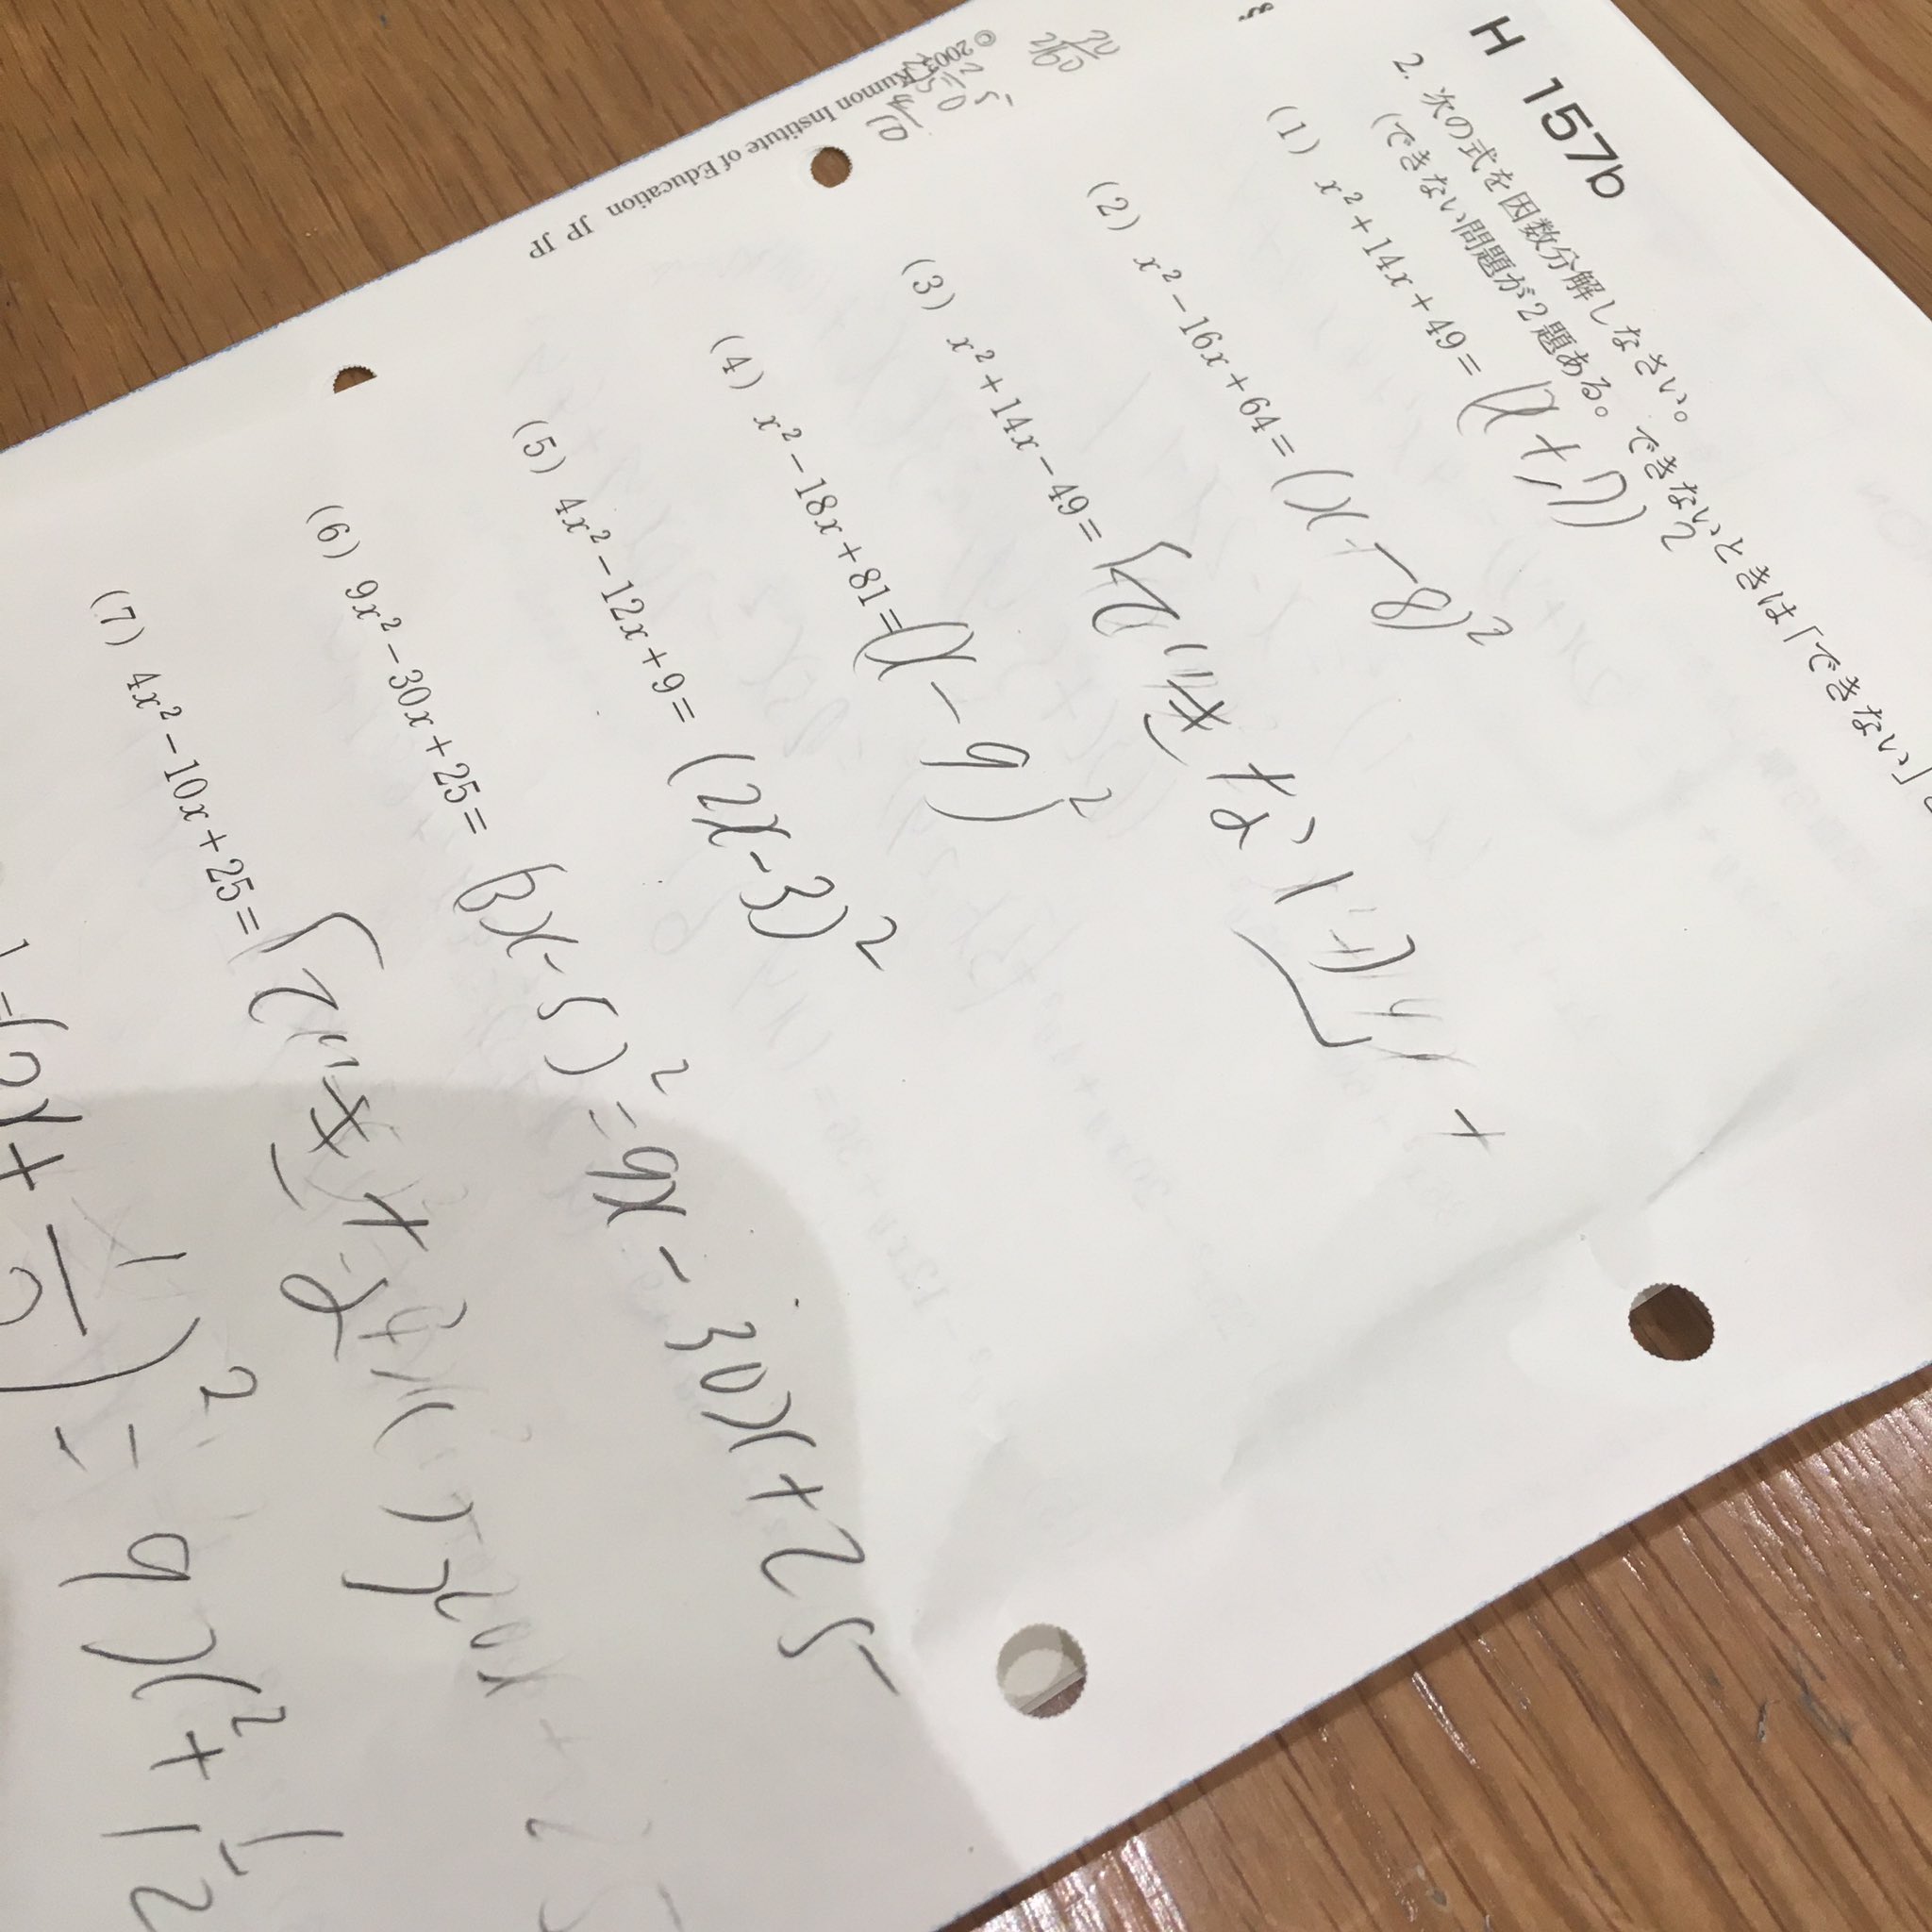 H 157b
2. 次の式を因数分解しなさい。
(できない問題が2題ある。できないときは「できない」
(1) x² + 14x + 49 = (x + 7)²
(2) x² − 16x + 64 = (x − 8)²
(3) x² + 14x − 49 = 「できない」
(4) x² − 18x + 81 = (x − 9)²
(5) 4x² − 12x + 9 = (2x − 3)²
(6) 9x² − 30x + 25 = (3x − 5)² = 9x − 30x + 25
(7) 4x² − 10x + 25 = 「できない」
© 2003 Kumon Institute of Education JP JP